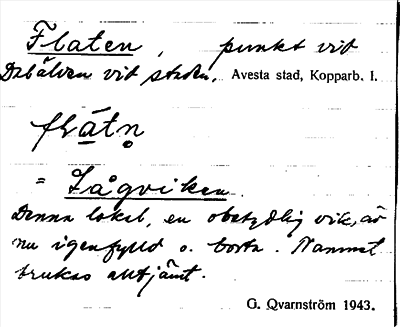 Flaten, punkt vid
Dalälven vid staden, Avesta stad, Kopparb. l.
flátn̥
= Lågviken.
Denna lokal, en obetydlig vik, är
nu igenfylld o. borta. Namnet
brukas alltjämt.
G. Qvarnström 1943.